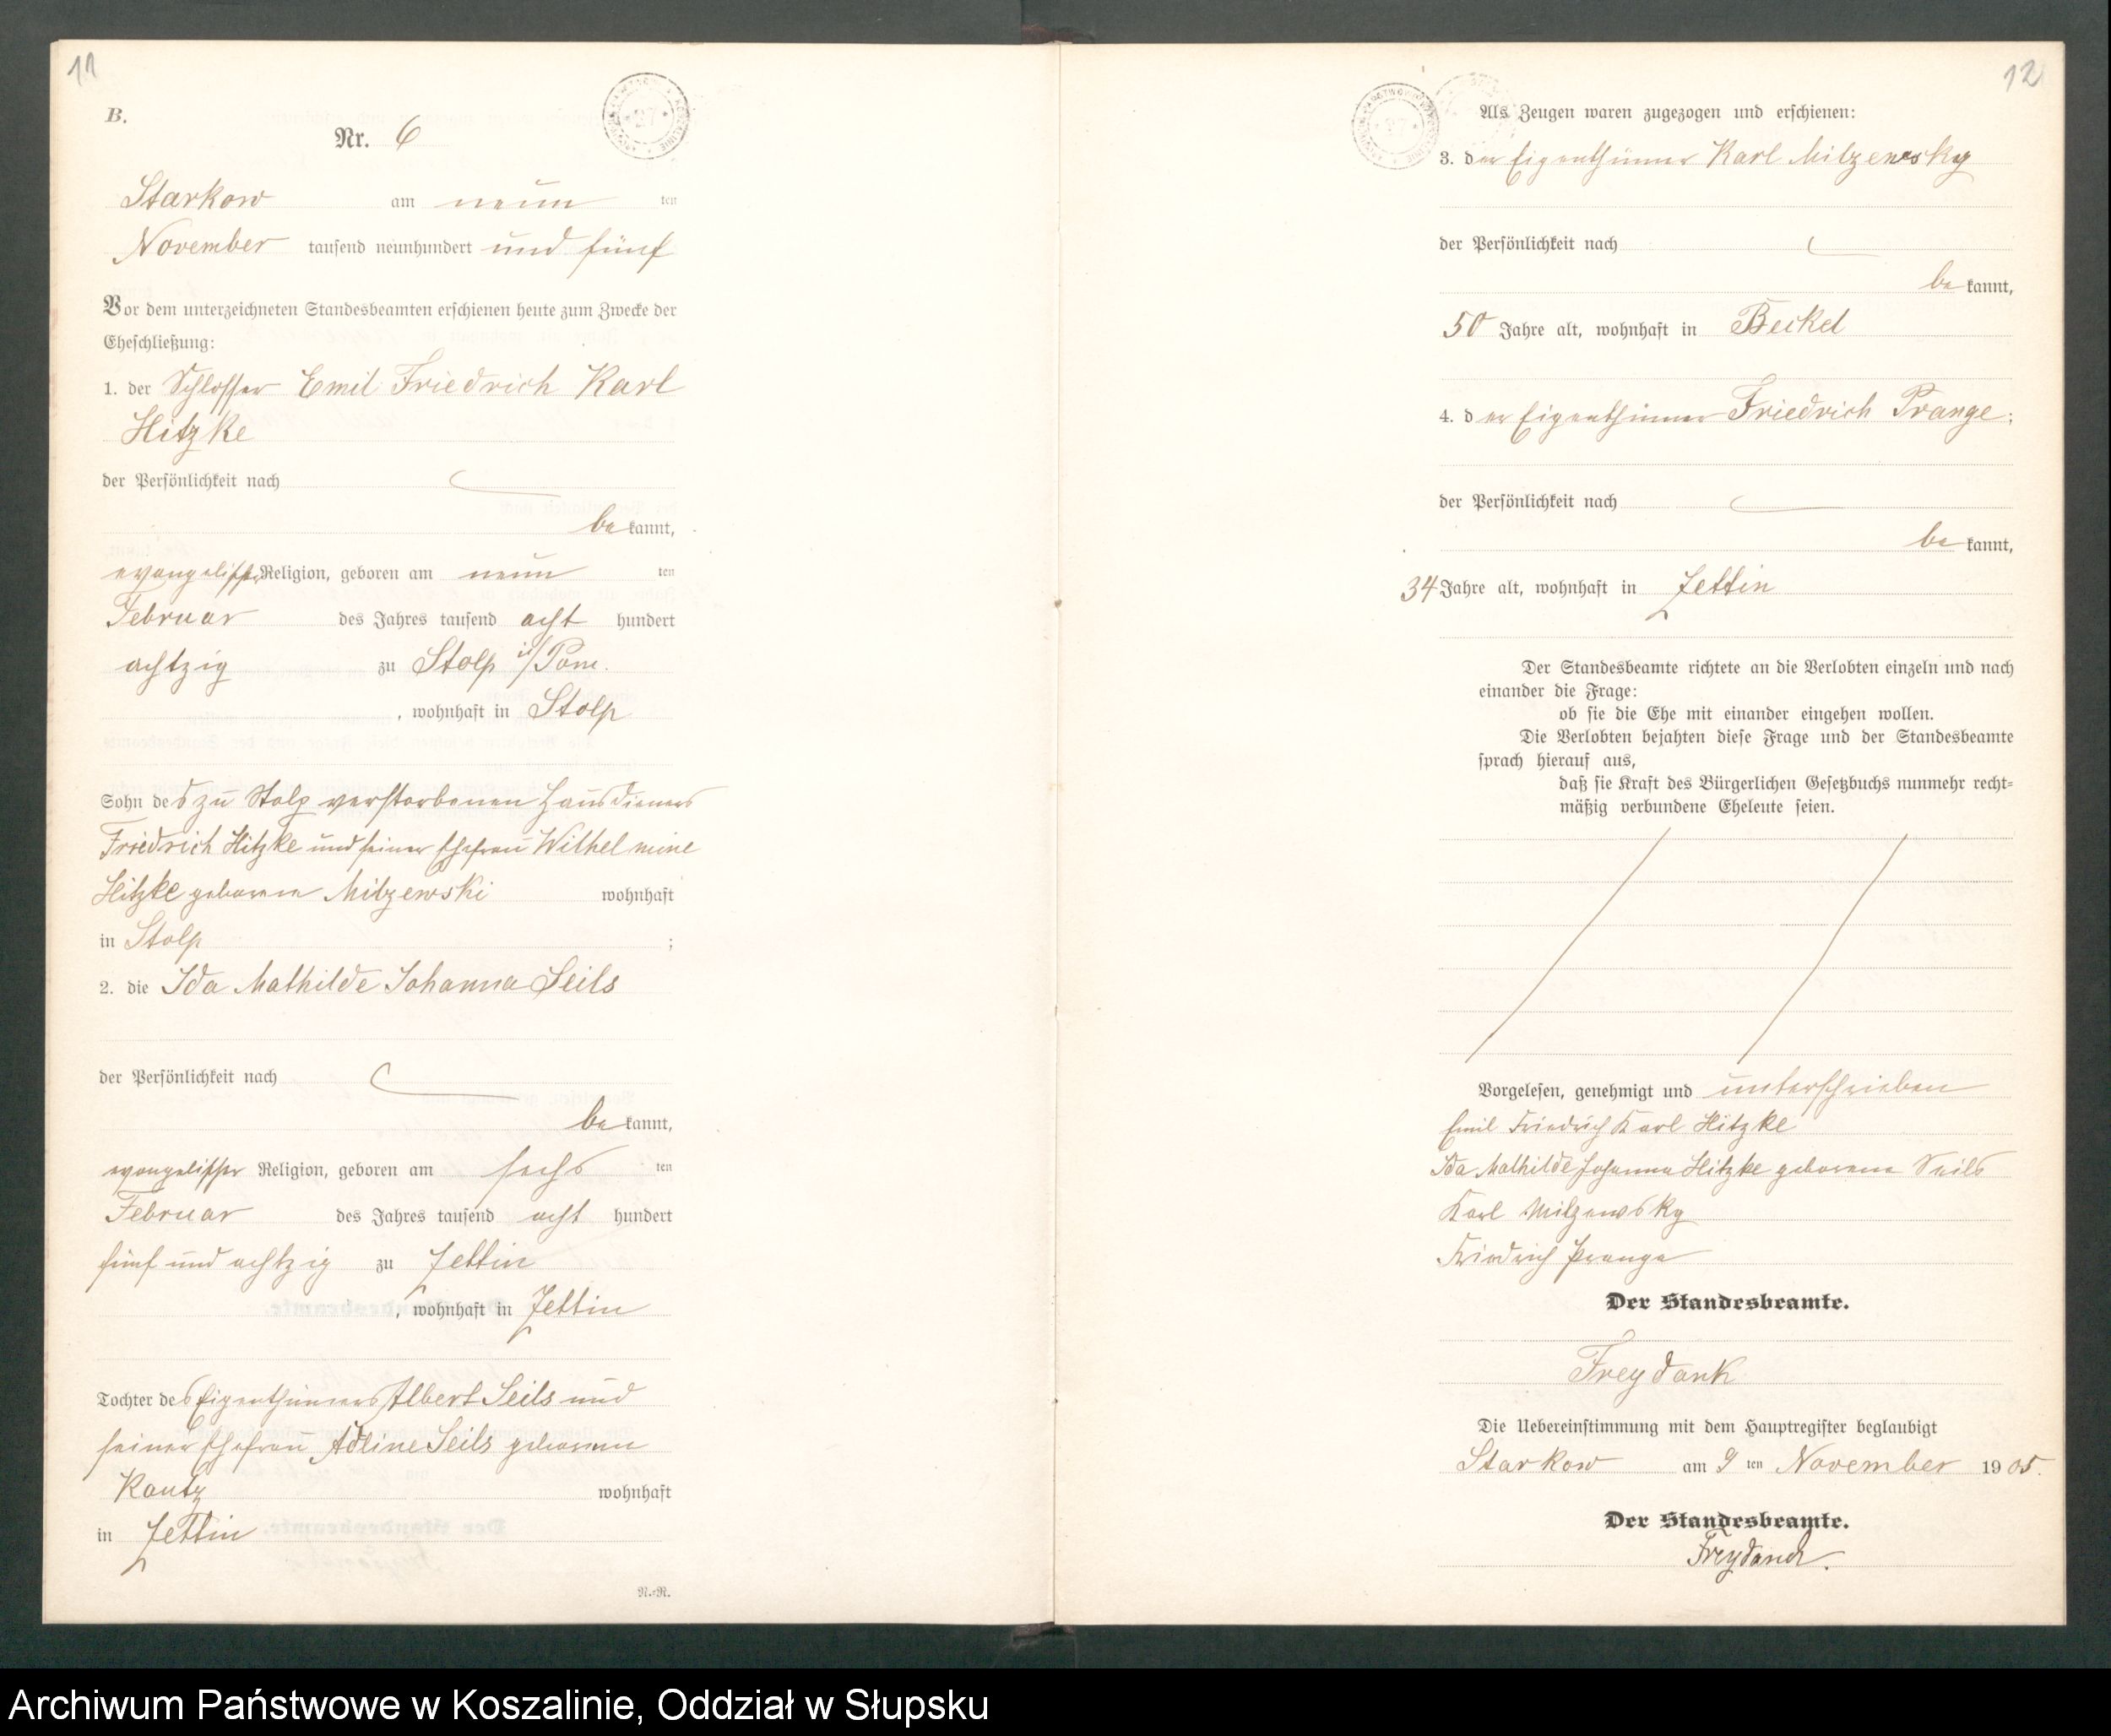 11
B.
Nr. 6
Starkow am neun ten
November tausend neunhundert und fünf
Vor dem unterzeichneten Standesbeamten erschienen heute zum Zwecke der
Eheschließung:
1. der Schlosser Emil Friedrich Karl
Hitzke
der Persönlichkeit nach
be kannt,
evangelischer Religion, geboren am neun ten
Februar des Jahres tausend acht hundert
achtzig zu Stolp i/Pom.
, wohnhaft in Stolp
Sohn des zu Stolp verstorbenen Hausdieners
Friedrich Hitzke und seiner Ehefrau Wilhelmine
Hitzke geborene Milzewski wohnhaft
in Stolp ;
2. die Ida Mathilde Johanna Seils
der Persönlichkeit nach
be kannt,
evangelischer Religion, geboren am sechs ten
Februar des Jahres tausend acht hundert
fünf und achtzig zu Zettin
, wohnhaft in Zettin
Tochter des Eigenthümers Albert Seils und
seiner Ehefrau Adline Seils geborenen
Kautz wohnhaft
in Zettin
N.-R.
12
Als Zeugen waren zugezogen und erschienen:
3. der Eigenthümer Karl Milzewsky
der Persönlichkeit nach
be kannt,
50 Jahre alt, wohnhaft in Beckel
4. der Eigenthümer Friedrich Prange;
der Persönlichkeit nach
be kannt,
34 Jahre alt, wohnhaft in Zettin
Der Standesbeamte richtete an die Verlobten einzeln und nach
einander die Frage:
ob sie die Ehe mit einander eingehen wollen.
Die Verlobten bejahten diese Frage und der Standesbeamte
sprach hierauf aus,
daß sie Kraft des Bürgerlichen Gesetzbuchs nunmehr recht-
mäßig verbundene Eheleute seien.
Vorgelesen, genehmigt und unterschrieben
Emil Friedrich Karl Hitzke
Ida Mathilde Johanna Hitzke geborene Seils
Karl Milzewsky
Friedrich Prange
Der Standesbeamte.
Freydank
Die Uebereinstimmung mit dem Hauptregister beglaubigt
Starkow am 9 ten November 1905.
Der Standesbeamte.
Freydank.
Archiwum Państwowe w Koszalinie, Oddział w Słupsku